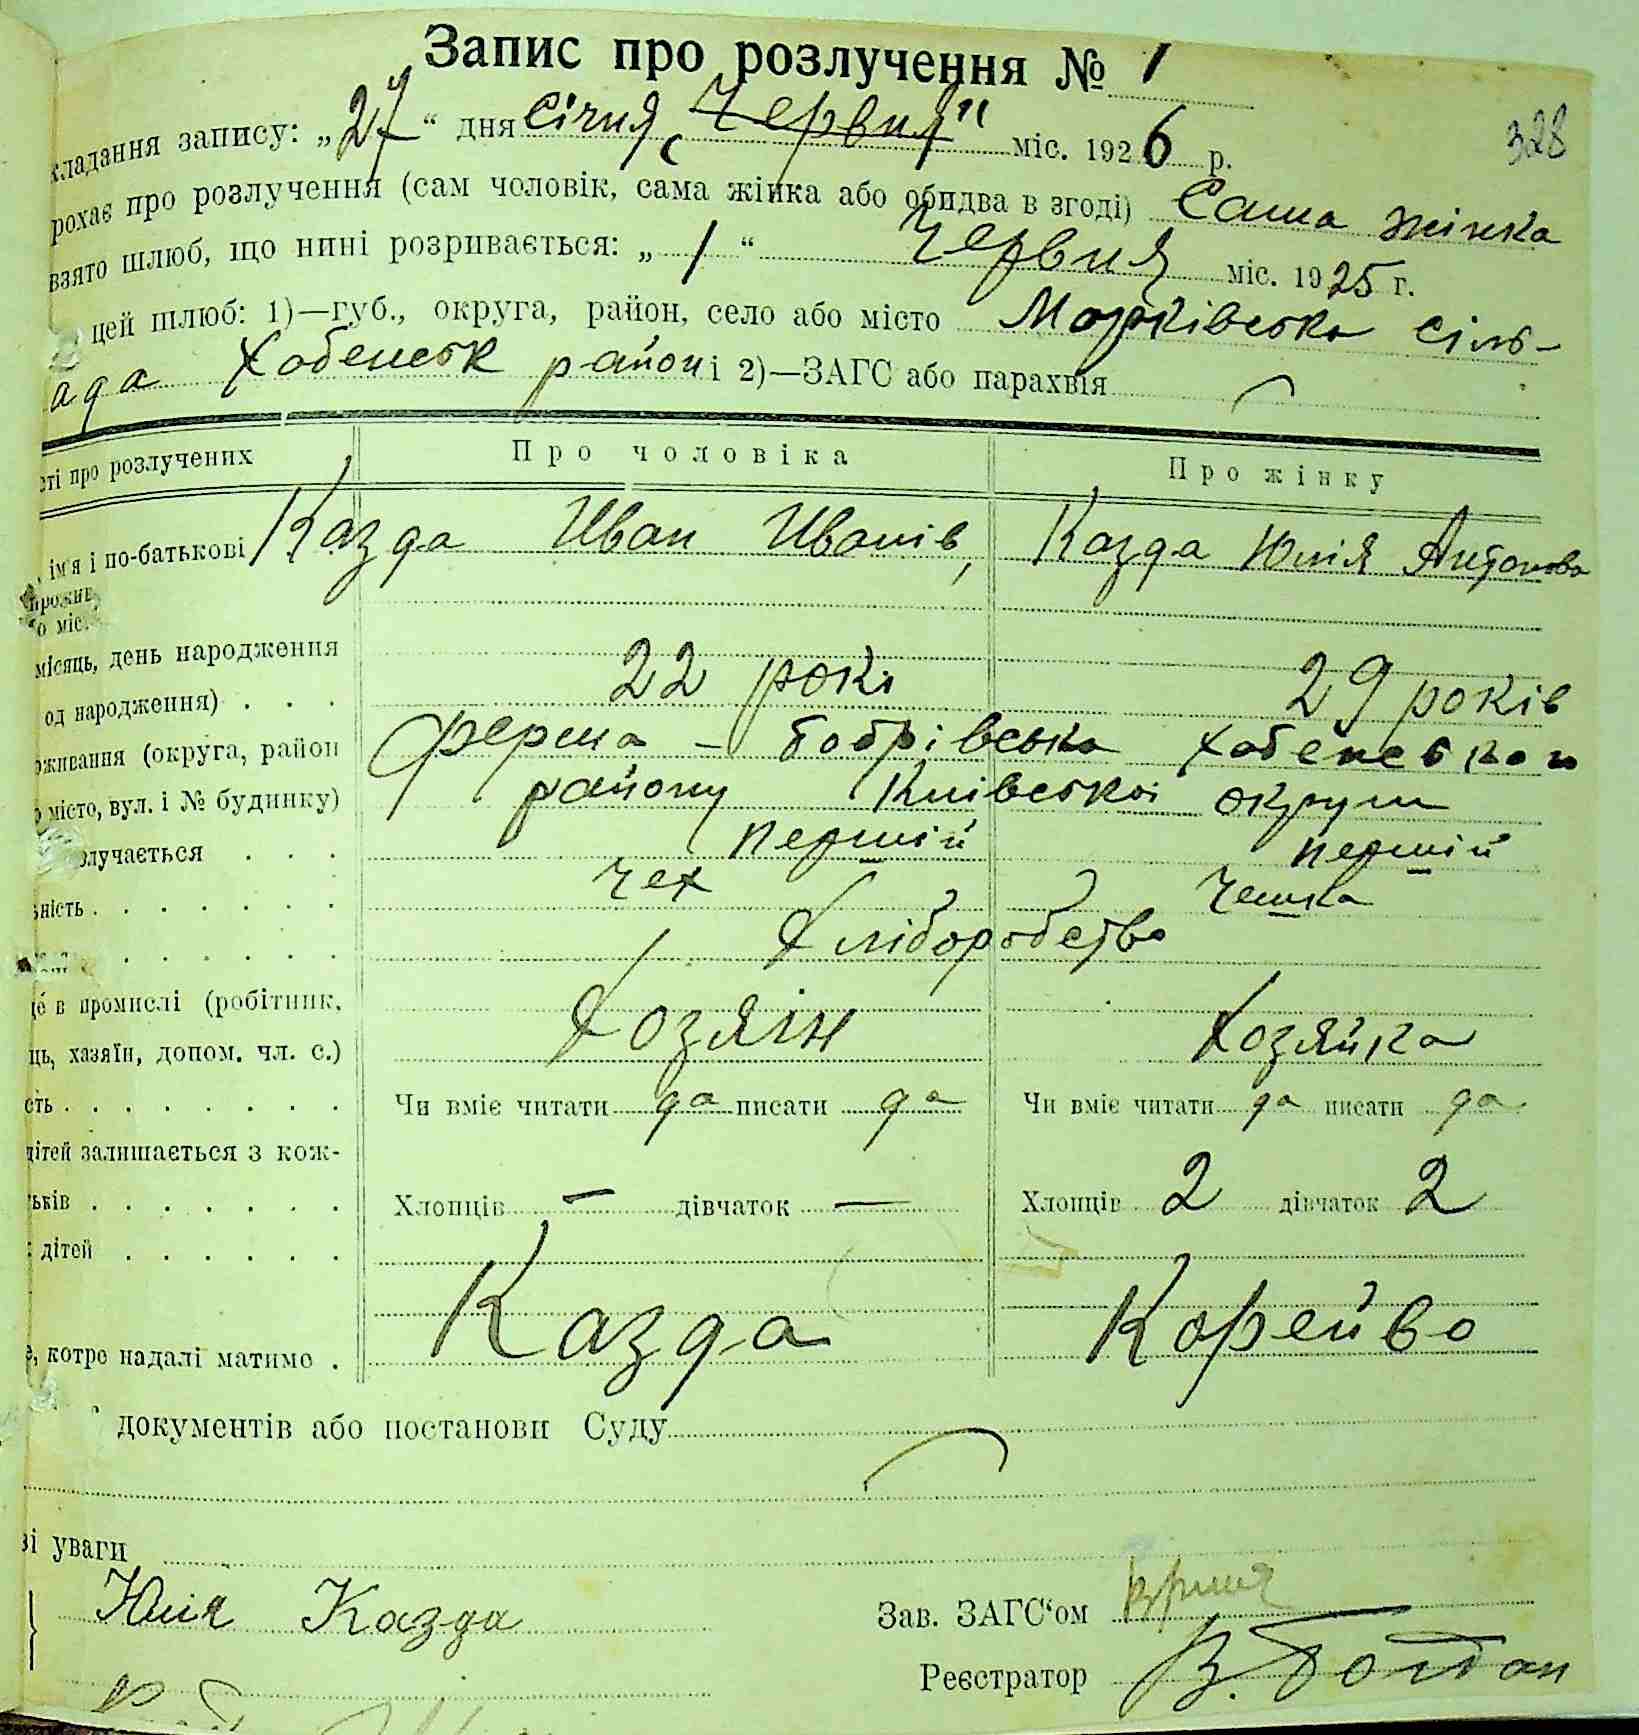 Запис про розлучення № 1
328
кладання запису: „27“ дня січня „Червня" міс. 1926 р.
рохає про розлучення (сам чоловік, сама жінка або обидва в згоді) Сама жінка
взято шлюб, що нині розривається: „1“ Червня міс. 1925 г.
цей шлюб: 1)—губ., округа, район, село або місто сіль-
ада Хабенськ район і 2)—ЗАГС або парахвія
сті про розлучених Про чоловіка Про жінку
імя і по-батькові Казда Иван Иванів, Казда Юлія Антонова
прожив
о міс.
місяць, день народження
од народження) . . . 22 рокі 29 років
оживання (округа, район ферма – бобрівська Хабенського
о місто, вул. і № будинку) району Киівськоі округи
злучається . . . першій першій
ьність . . . . . . . чех чешка
. . . . . . . Хліборобство
це в промислі (робітник,
ць, хазяїн, допом. чл. с.) Хозяін Хозяйка
сть . . . . . . . . Чи вміє читати да писати да Чи вміє читати да писати да
дітей залишається з кож-
тьків . . . . . . . Хлопців — дівчаток — Хлопців 2 дівчаток 2
дітей . . . . . .
е, котре надалі матимо . Казда Корейво
документів або постанови Суду
ві уваги
Юлія Казда Зав. ЗАГС‘ом
Реєстратор В. Богдан